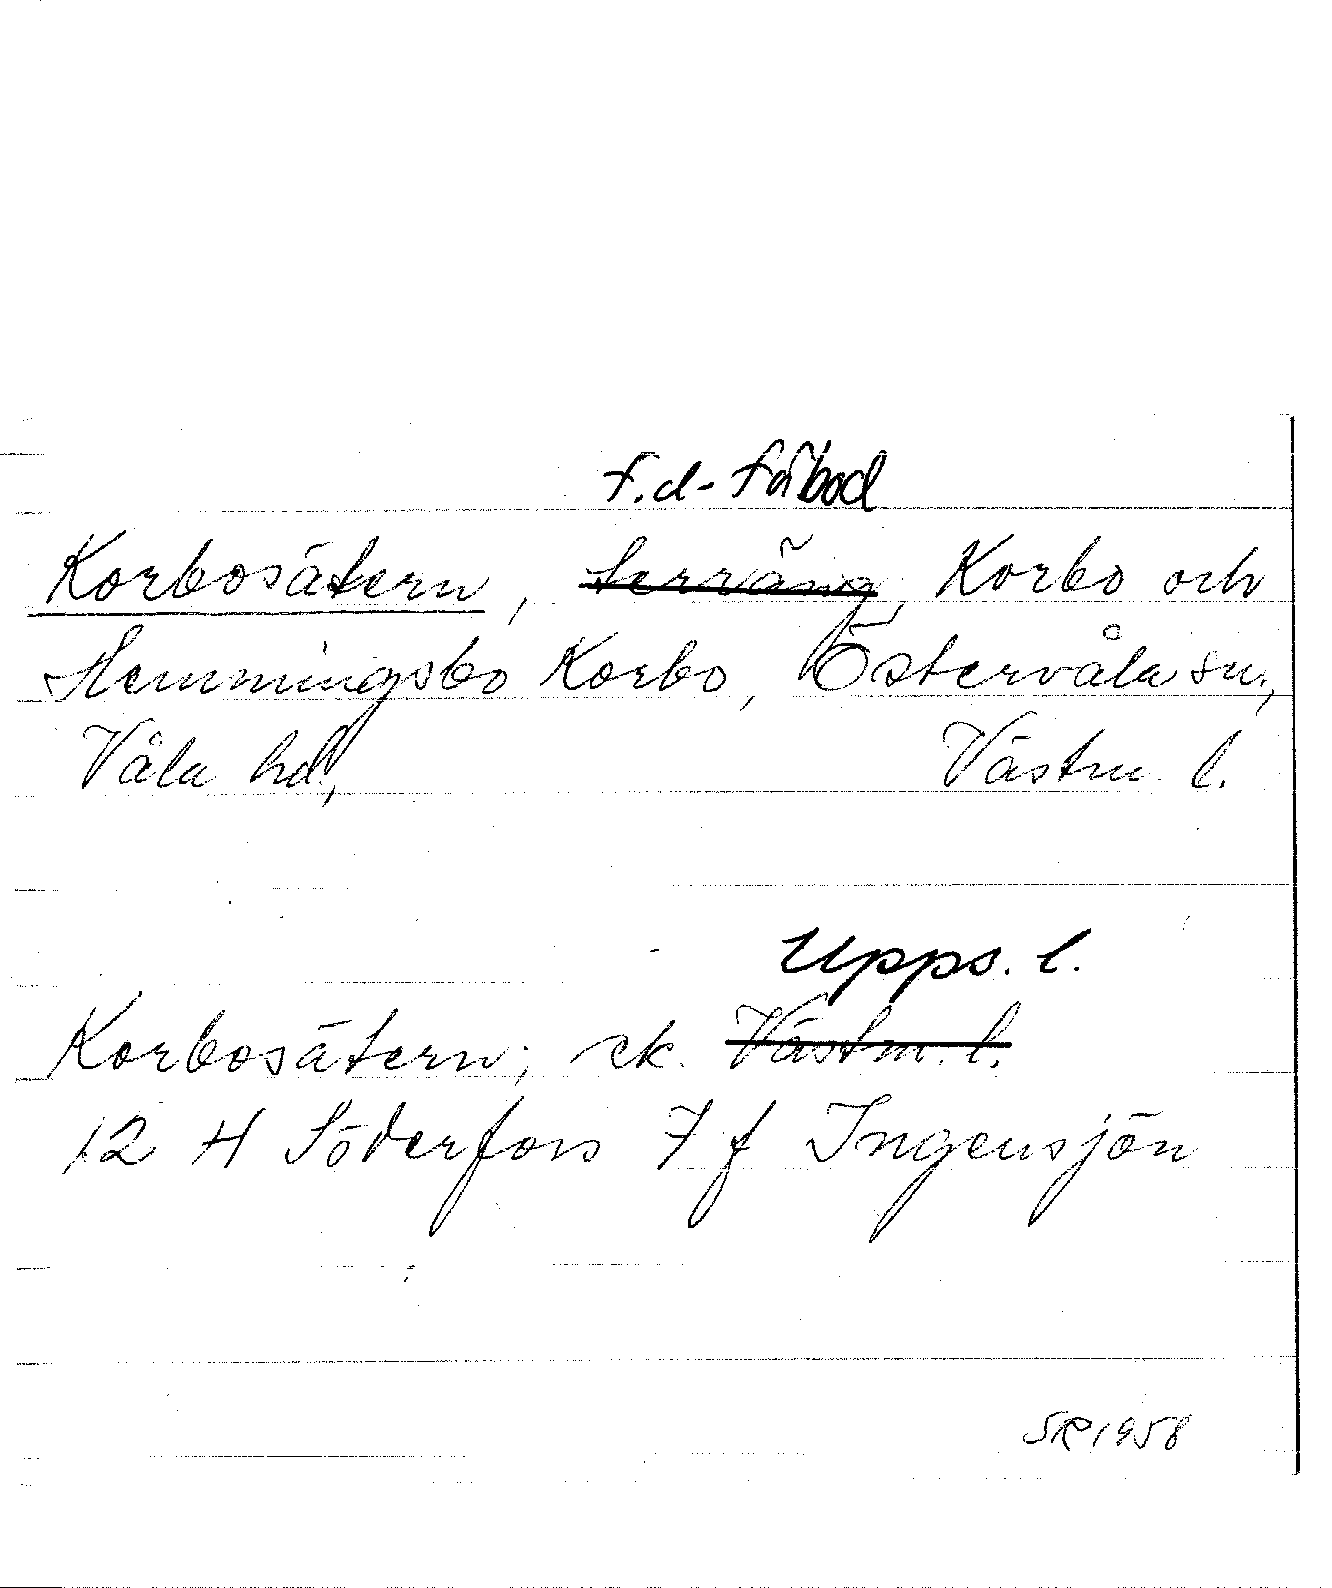 f.d. fäbod
Korbosätern, terräng, Korbo och
Hemmingsbo Korbo, Östervåla sn,
Våla hd, Västm. l.
Upps. l.
Korbosätern; ek. Västm. l.
12 H Söderfors 7 f Ingensjön
SR 1958